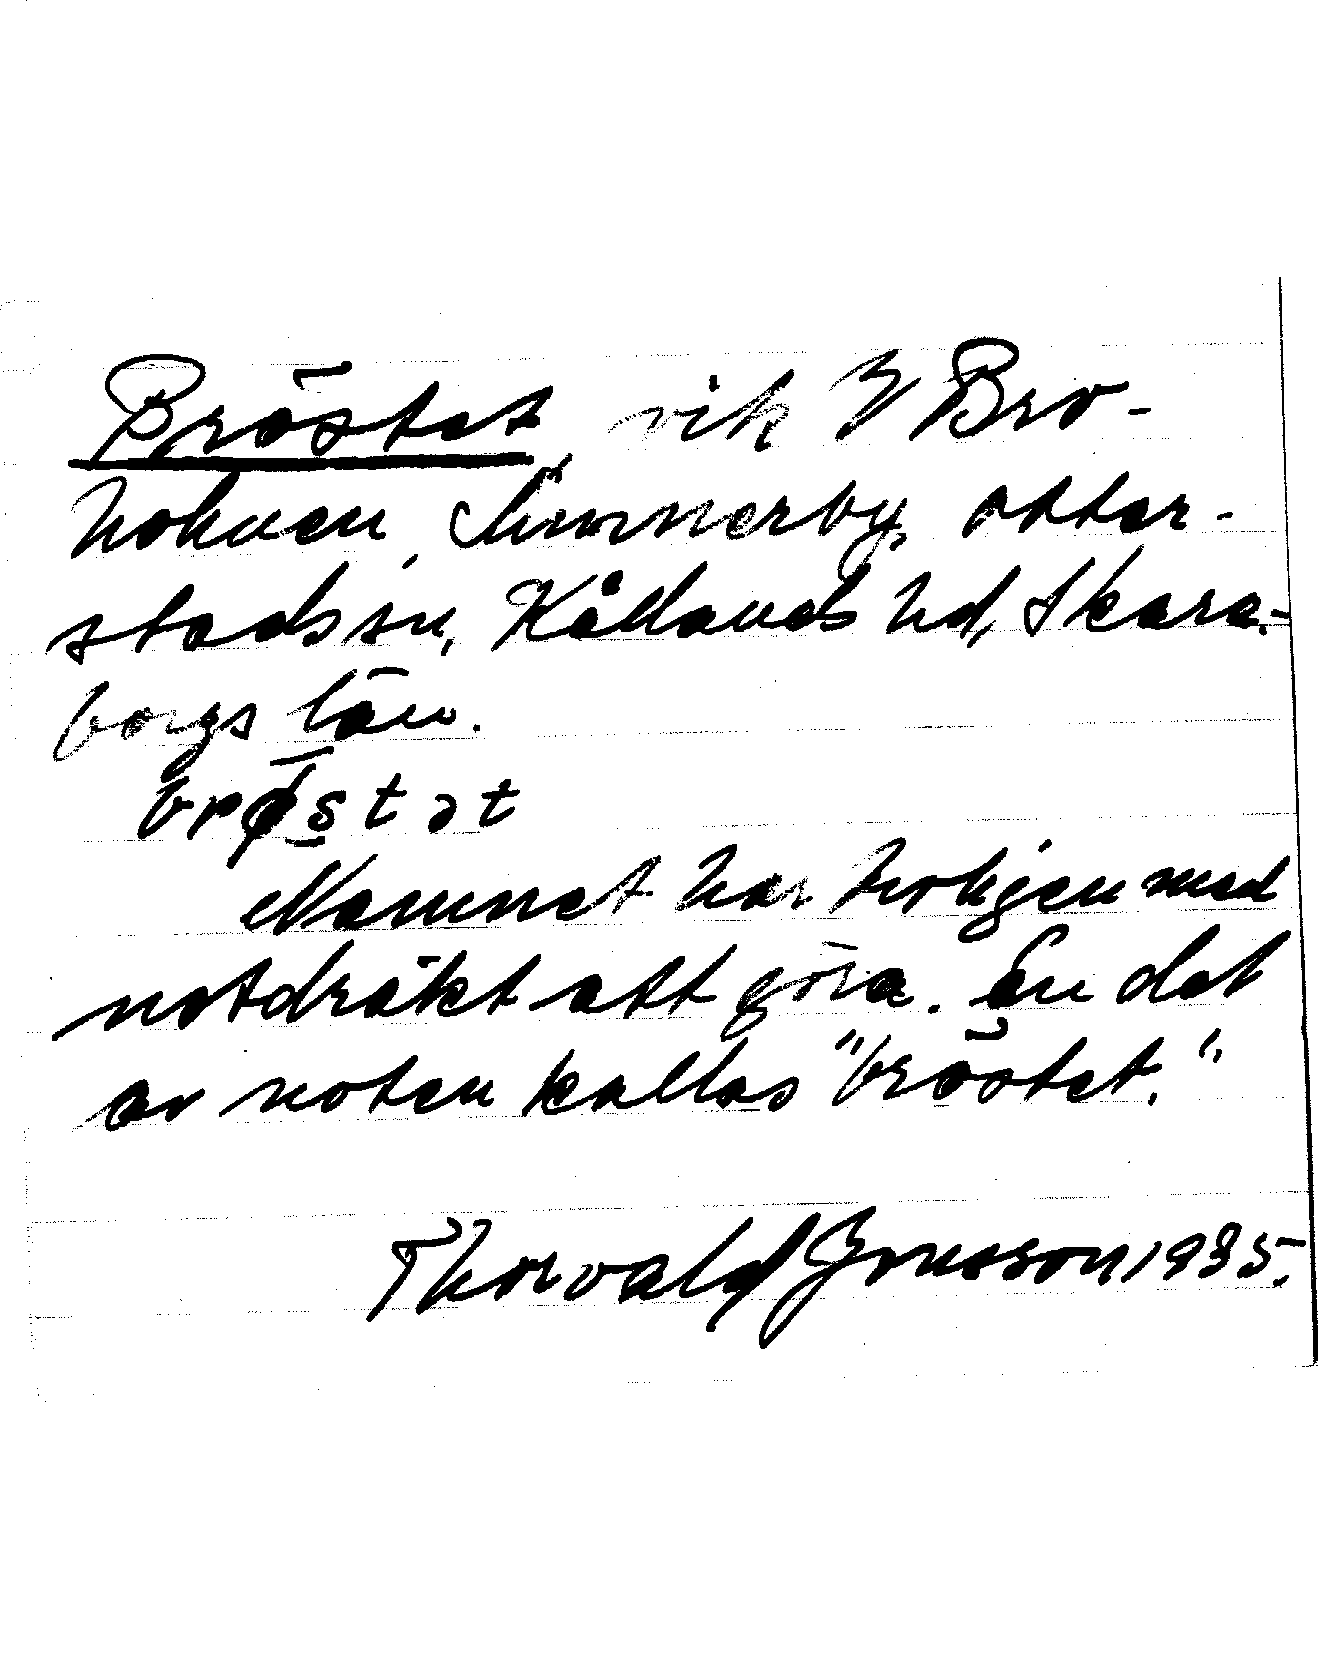 Bröstet vik I Bro-
holmen, Simmerby, Otter-
stads sn, Kållands hd, Skara-
borgs län.
brøstət
Namnet har troligen med
notdräkt att göra. En del
av noten kallas "bröstet."
Thorvald Jonsson 1935.